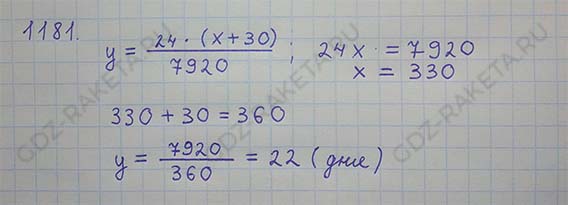 1181.
y = 24 · (x + 30) / 7920 ; 24x = 7920
x = 330
330 + 30 = 360
y = 7920 / 360 = 22 (дне)
GDZ-RAKETA.RU
GDZ-RAKETA.RU
GDZ-RAKETA.RU